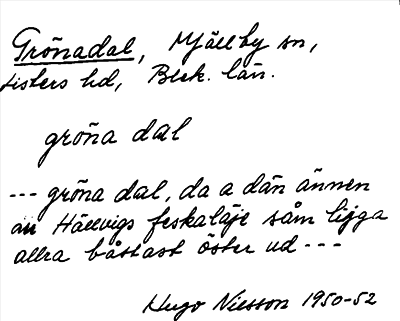 Grönadal, Mjällby sn,
Listers hd, Blek. län.
gröna dal
--- gröna dal, da a dän ännen
au Hällvigs feskaläje såm lijga
allra båstast öster ud ---
Hugo Nilsson 1950-52